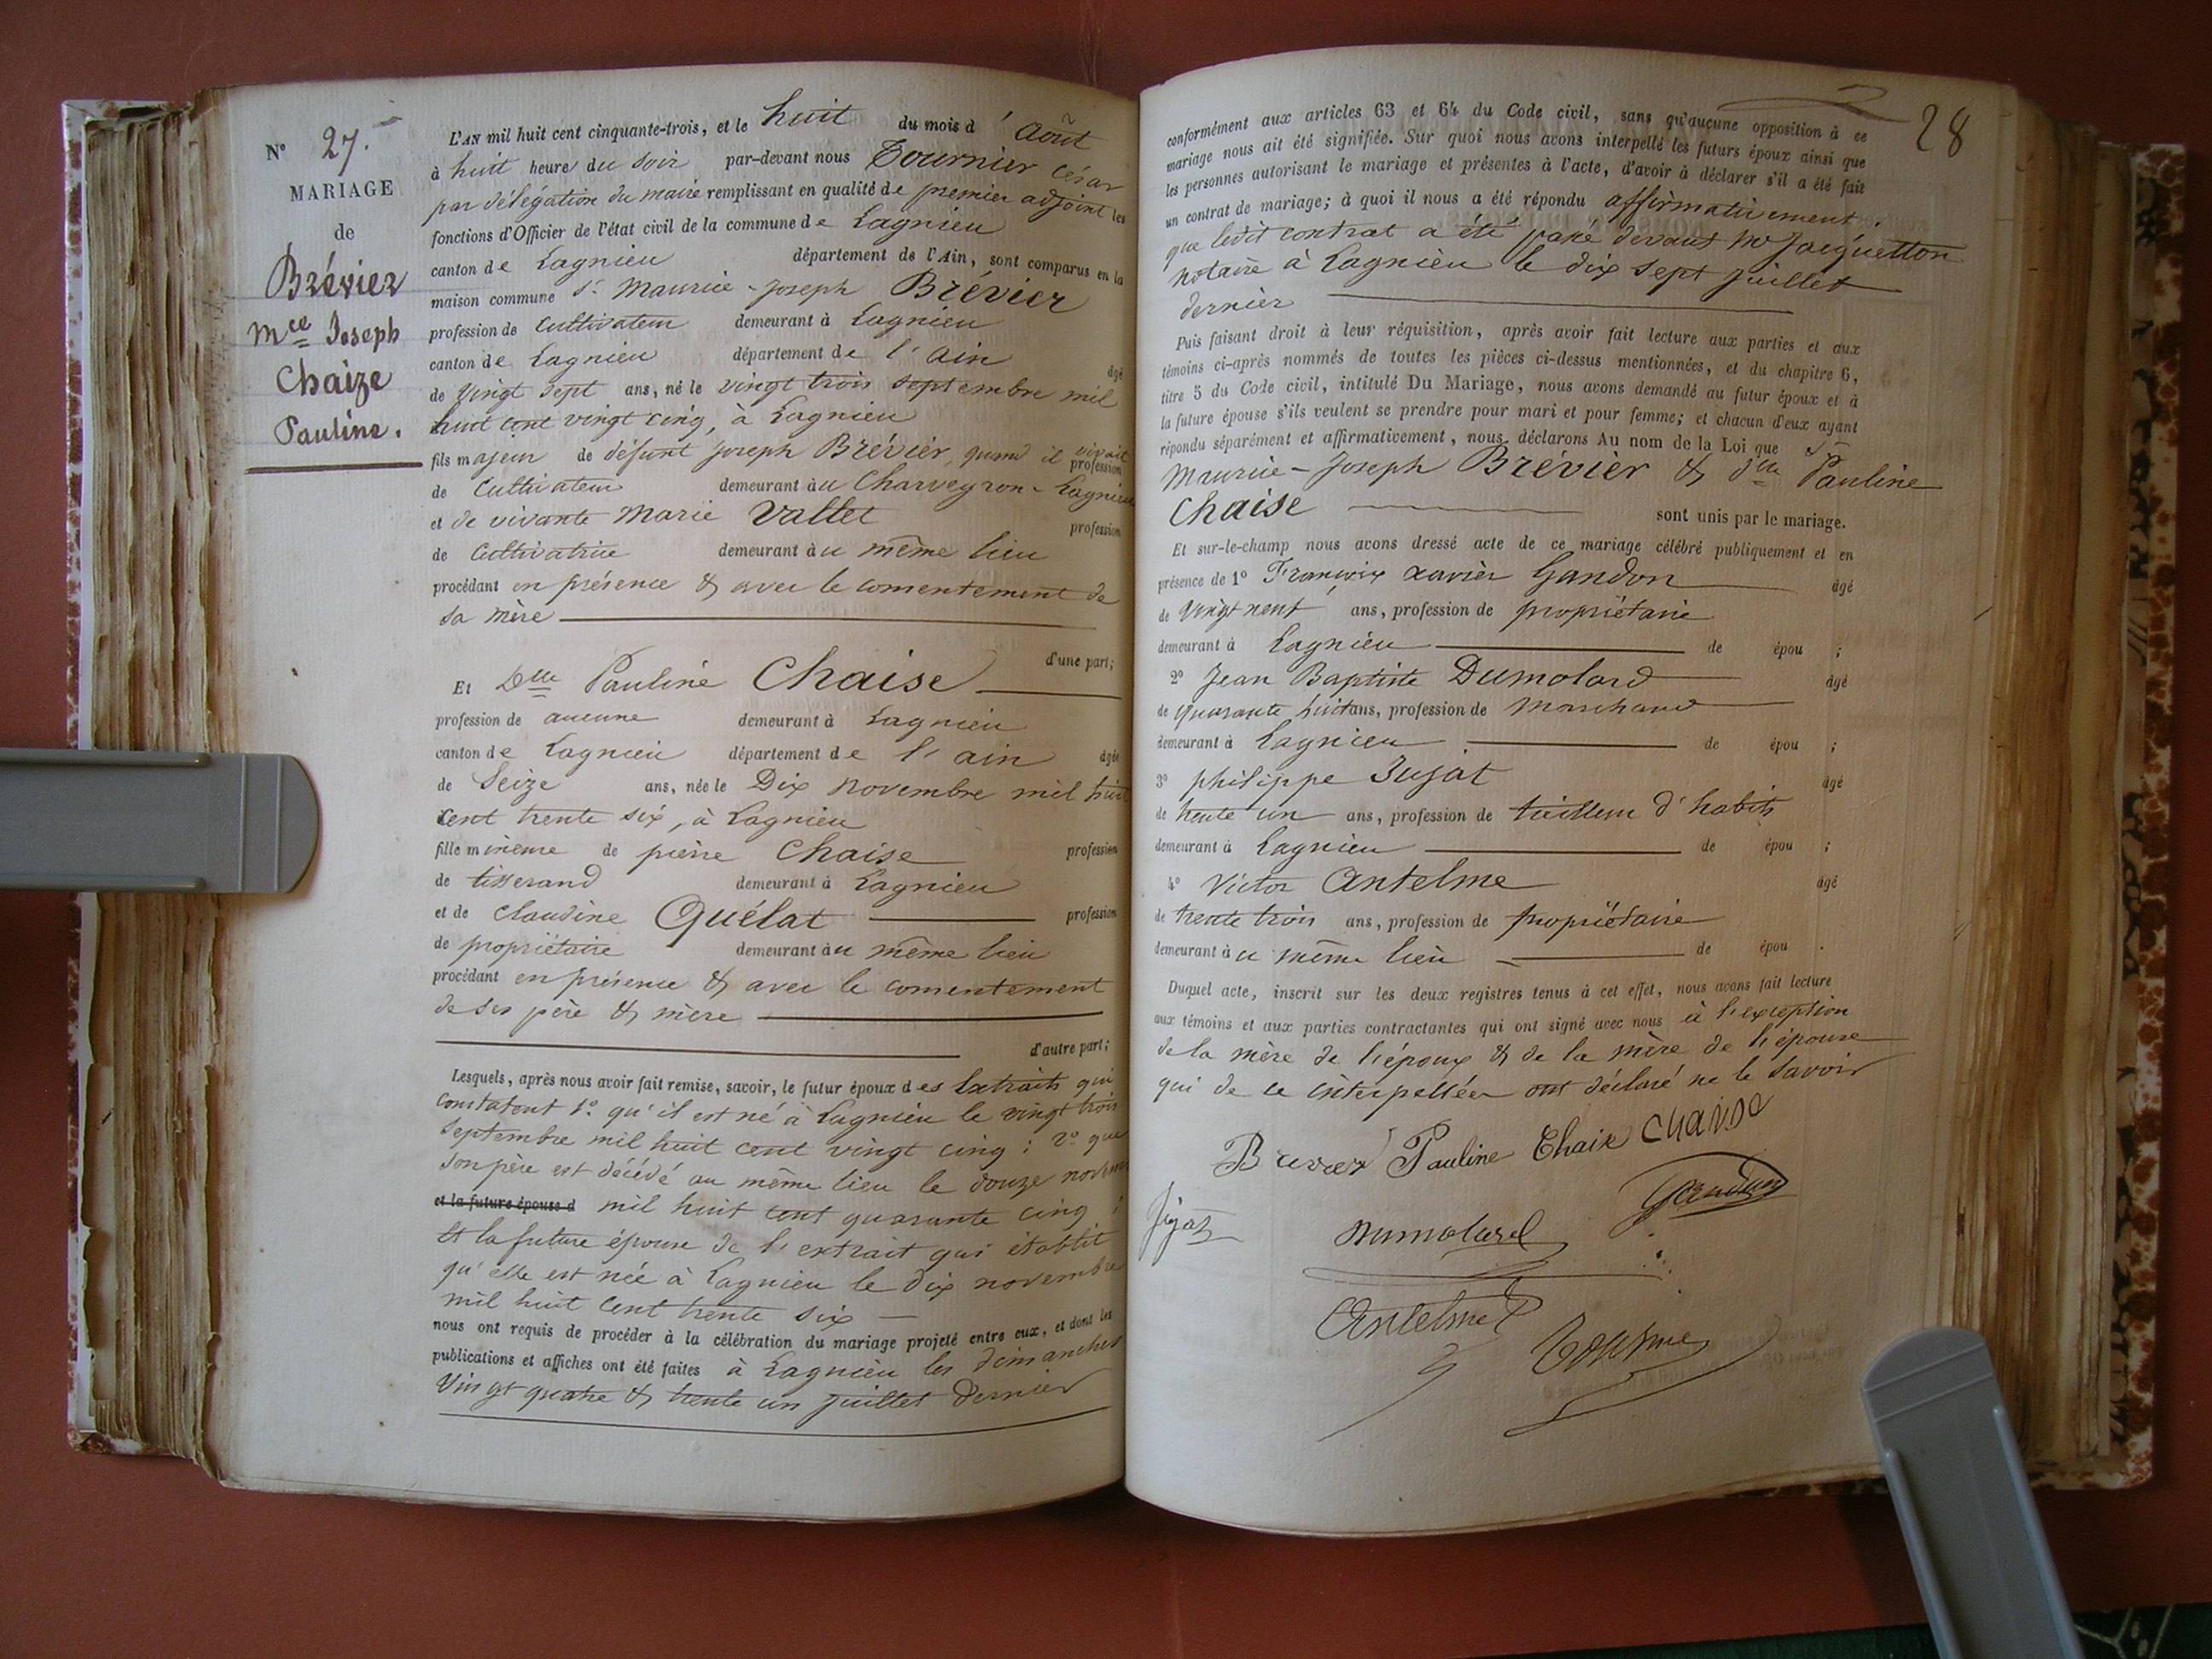 N° 27.
MARIAGE
de
Brévier
Mce Joseph
Chaize
Pauline.
L'AN mil huit cent cinquante-trois, et le huit du mois d'Août
à huit heure du soir par-devant nous Tournier César
par délégation du maire remplissant en qualité de premier adjoint les
fonctions d'Officier de l'état civil de la commune de Lagnieu
canton de Lagnieu département de l'Ain, sont comparus en la
maison commune Sr. Maurice-Joseph Brévier
profession de Cultivateur demeurant à Lagnieu
canton de Lagnieu département de l'ain âgé
de vingt sept ans, né le vingt trois septembre mil
huit cent vingt cinq, à Lagnieu
fils majeur de défunt joseph Brévier, quand il vivait profession
de Cultivateur demeurant au Charveyron-Lagnieu
et de vivante Marie Vallet profession
de Cultivatrice demeurant au même lieu
procédant en présence & avec le consentement de
sa mère
d'une part;
Et Dlle Pauline Chaise
profession de aucune demeurant à Lagnieu
canton de Lagnieu département de l'ain âgée
de Seize ans, née le Dix novembre mil huit
cent trente six, à Lagnieu
fille mineure de pierre Chaise profession
de tisserand demeurant à Lagnieu
et de Claudine Quélat profession
de propriétaire demeurant au même lieu
procédant en présence & avec le consentement
de ses père & mère
d'autre part;
Lesquels, après nous avoir fait remise, savoir, le futur époux des Extraits qui
constatent 1° qu'il est né à Lagnieu le vingt trois
septembre mil huit cent vingt cinq; 2° que
son père est décédé au même lieu le douze novembre
et la future épouse d mil huit cent quarante cinq;
Et la future épouse de l'extrait qui établit
qu'elle est née à Lagnieu le dix novembre
mil huit cent trente six —
nous ont requis de procéder à la célébration du mariage projeté entre eux, et dont les
publications et affiches ont été faites à Lagnieu les dimanches
Vingt quatre & trente un juillet dernier
28
conformément aux articles 63 et 64 du Code civil, sans qu'aucune opposition à ce
mariage nous ait été signifiée. Sur quoi nous avons interpellé les futurs époux ainsi que
les personnes autorisant le mariage et présentes à l'acte, d'avoir à déclarer s'il a été fait
un contrat de mariage; à quoi il nous a été répondu affirmativement.
que ledit contrat a été passé devant Me Jacquetton
notaire à Lagnieu le dix sept juillet
dernier
Puis faisant droit à leur réquisition, après avoir fait lecture aux parties et aux
témoins ci-après nommés de toutes les pièces ci-dessus mentionnées, et du chapitre 6,
titre 5 du Code civil, intitulé Du Mariage, nous avons demandé au futur époux et à
la future épouse s'ils veulent se prendre pour mari et pour femme; et chacun d'eux ayant
répondu séparément et affirmativement, nous déclarons Au nom de la Loi que Sr
Maurice-Joseph Brévier & dlle Pauline
Chaise sont unis par le mariage.
Et sur-le-champ nous avons dressé acte de ce mariage célébré publiquement et en
présence de 1° François xavier Gandon âgé
de vingt neuf ans, profession de propriétaire
demeurant à Lagnieu de épou ;
2° Jean Baptiste Dumolard âgé
de quarante huit ans, profession de Marchand
demeurant à Lagnieu de épou ;
3° philippe Jujat âgé
de trente un ans, profession de tailleur d'habits
demeurant à Lagnieu de épou ;
4° Victor Antelme âgé
de trente trois ans, profession de propriétaire
demeurant au même lieu de épou .
Duquel acte, inscrit sur les deux registres tenus à cet effet, nous avons fait lecture
aux témoins et aux parties contractantes qui ont signé avec nous à l'exception
de la mère de l'époux & de la mère de l'épouse
qui de ce interpellées ont déclaré ne le savoir
Brevier Pauline Chaise Chaise
Gandon
Jujat Dumolard
Antelme Tournier